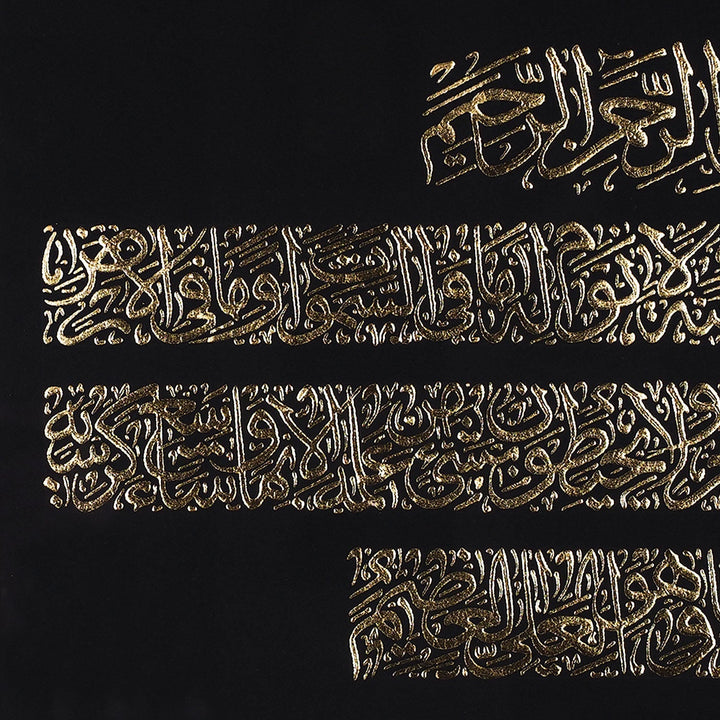 الرحمن الرحيم
لا نوم له ما في السموات وما في الأرض
ولا يحيطون بشيء من علمه إلا بما شاء وسع كرسيه
وهو العلي العظيم